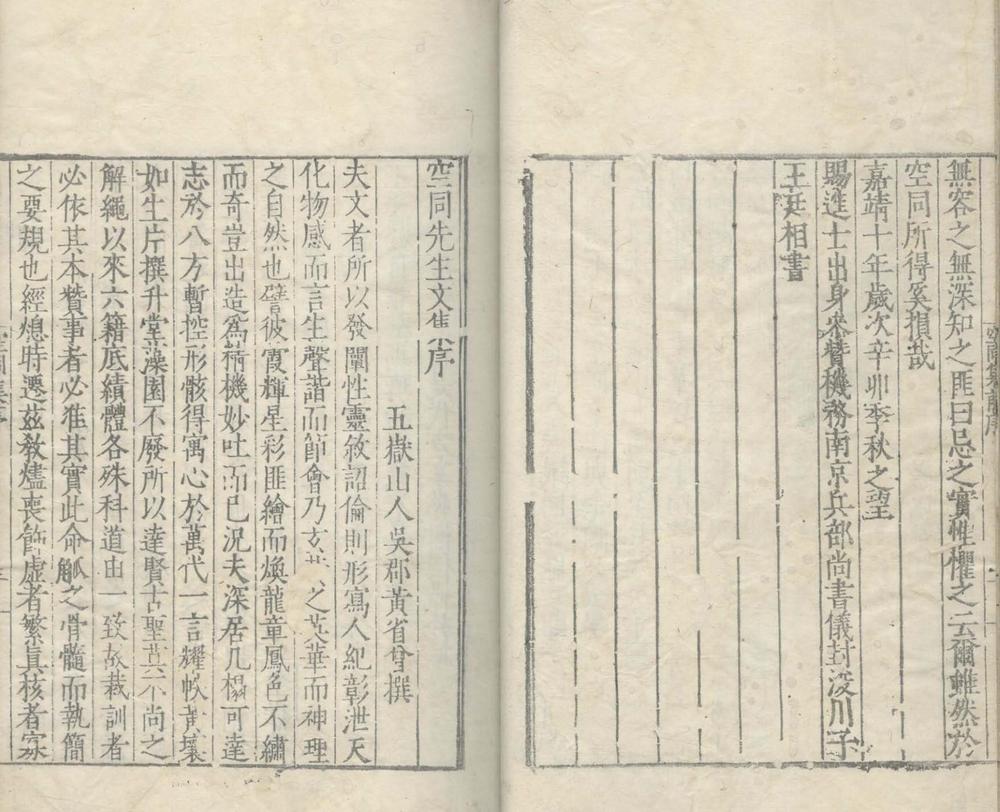 無容之無深知之匪曰忌之實惟懼之云爾雖然於
空同所得奚損哉
嘉靖十年歲次辛卯季秋之望
賜進士出身叅贊機務南京兵部尚書儀封浚川子
王廷相書
空同先生文集序
五嶽山人吳郡黃省曾撰
夫文者所以發闡性靈敘詔倫則形寫人紀彰泄天
化物感而言生聲諧而節會乃玄之英華而神理
之自然也譬彼霞輝星彩匪繪而煥龍章鳳色不繡
而奇豈出造爲術機妙吐而已況夫深居几榻可達
志於八方暫控形骸得寓心於萬代一言耀帙黃壤
如生片撰升堂藻園不廢所以達賢古聖莫不尚之
解繩以來六籍底績體各殊科道由一致故裁訓者
必依其本贊事者必准其實此命觚之骨髓而執簡
之要規也經熄時遷茲教燼喪飾虛者繁眞核者寡